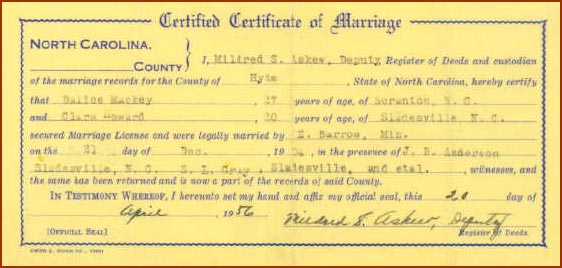 Certified Certificate of Marriage
NORTH CAROLINA.
COUNTY
I, Mildred S. Askew, Deputy Register of Deeds and custodian
of the marriage records for the County of Hyde, State of North Carolina, hereby certify
that Mackey, 27 years of age, of Scranton, N. C.
and Clara Howard, 20 years of age, of Sladesville, N. C.
secured Marriage License and were legally married by Z. Barrow, Min.
on the 21 day of Dec. 19 in the presence of J. B. Anderson
Sladesville, N. C. S. L. Gray, Sladesville, and etal., witnesses, and
the same has been returned and is now a part of the records of said County.
IN TESTIMONY WHEREOF, I hereunto set my hand and affix my official seal, this 20 day of
April 1956 Mildred S. Askew, Deputy
[OFFICIAL SEAL] Register of Deeds.
OWEN G. DUNN CO.